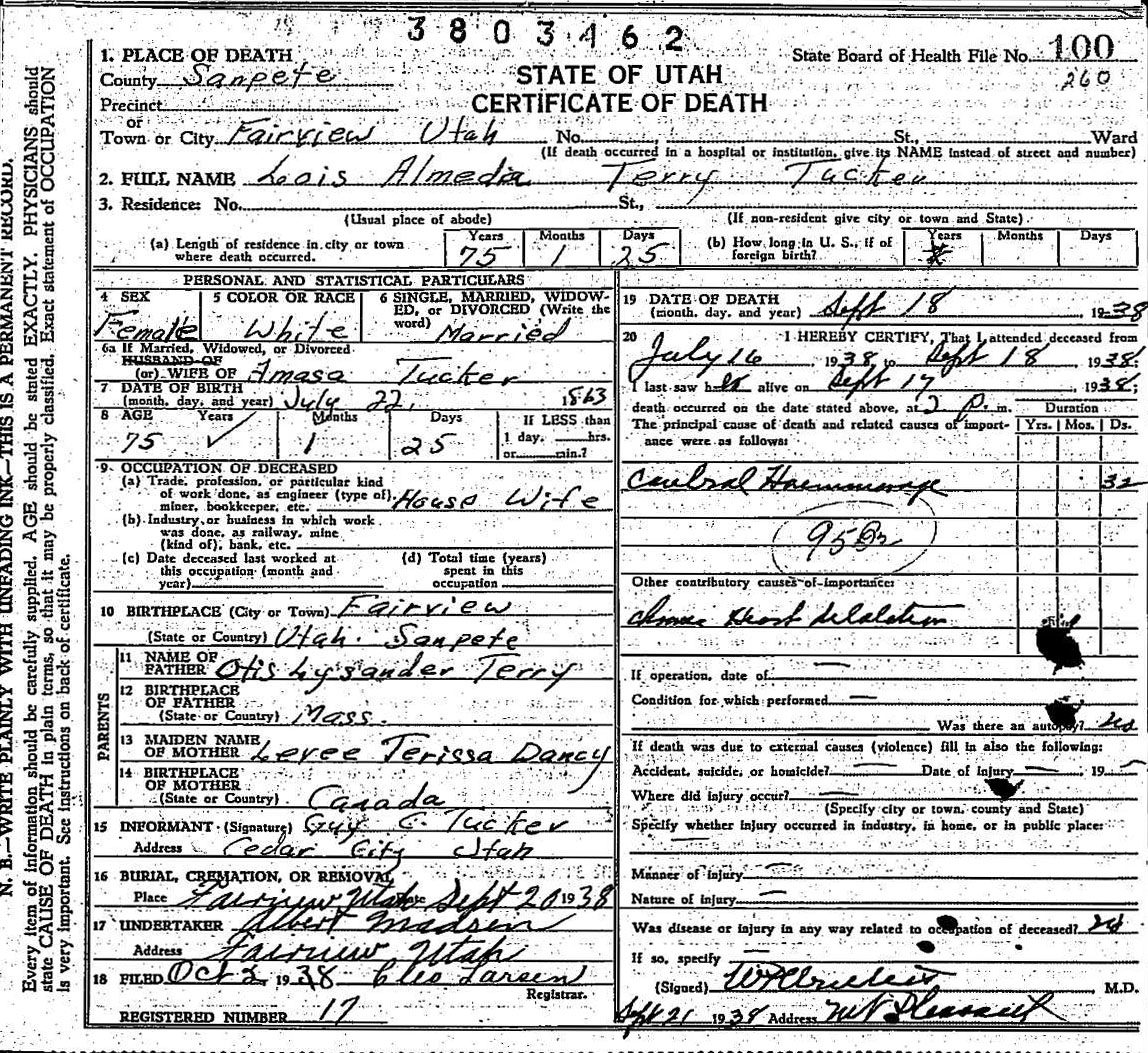 3803462
State Board of Health File No. 100
260
STATE OF UTAH
CERTIFICATE OF DEATH
1. PLACE OF DEATH
County Sanpete
Precinct
or
Town or City Fairview Utah No. , St., Ward
(If death occurred in a hospital or institution, give its NAME instead of street and number)
2. FULL NAME Lois Almeda Terry Tucker
3. Residence: No. St.,
(Usual place of abode) (If non-resident give city or town and State)
(a) Length of residence in city or town where death occurred. Years 75 Months 1 Days 25
(b) How long in U. S., if of foreign birth? Years Months Days
PERSONAL AND STATISTICAL PARTICULARS
4 SEX Female
5 COLOR OR RACE White
6 SINGLE, MARRIED, WIDOWED, or DIVORCED (Write the word) Married
6a If Married, Widowed, or Divorced
HUSBAND OF
(or) WIFE OF Amasa Tucker
7 DATE OF BIRTH
(month, day, and year) July 22, 1863
8 AGE Years 75 Months 1 Days 25 If LESS than
1 day, hrs.
or min.?
9 OCCUPATION OF DECEASED
(a) Trade, profession, or particular kind
of work done, as engineer (type of),
miner, bookkeeper, etc. House Wife
(b) Industry, or business in which work
was done, as railway, mine
(kind of), bank, etc.
(c) Date deceased last worked at
this occupation (month and
year)
(d) Total time (years)
spent in this
occupation
10 BIRTHPLACE (City or Town) Fairview
(State or Country) Utah. Sanpete
PARENTS
11 NAME OF
FATHER Otis Lysander Terry
12 BIRTHPLACE
OF FATHER
(State or Country) Mass.
13 MAIDEN NAME
OF MOTHER Levee Terissa Dancy
14 BIRTHPLACE
OF MOTHER
(State or Country) Canada
15 INFORMANT (Signature) Guy C. Tucker
Address Cedar City Utah
16 BURIAL, CREMATION, OR REMOVAL
Place Fairview Utah Date Sept 20 1938
17 UNDERTAKER Albert Madsen
Address Fairview Utah
18 FILED Oct 2 1938 Cleo Larsen
Registrar.
REGISTERED NUMBER 17
19 DATE OF DEATH
(month, day, and year) Sept 18 1938
20 I HEREBY CERTIFY, That I attended deceased from
July 16 1938 to Sept 18 1938
I last saw her alive on Sept 17 1938,
death occurred on the date stated above, at 2 P. m.
The principal cause of death and related causes of importance were as follows:
Duration
Yrs. Mos. Ds.
Cerebral Haemmorage 32
Other contributory causes of importance:
Heart
If operation, date of
Condition for which performed
Was there an autopsy? no
If death was due to external causes (violence) fill in also the following:
Accident, suicide, or homicide? Date of injury 19
Where did injury occur?
(Specify city or town, county and State)
Specify whether injury occurred in industry, in home, or in public place:
Manner of injury
Nature of injury
Was disease or injury in any way related to occupation of deceased? no
If so, specify
(Signed) M.D.
Sept 21 1938 Address Mt Pleasant
N. B.—WRITE PLAINLY WITH UNFADING INK—THIS IS A PERMANENT RECORD.
Every item of information should be carefully supplied. AGE should be stated EXACTLY. PHYSICIANS should
state CAUSE OF DEATH in plain terms, so that it may be properly classified. Exact statement of OCCUPATION
is very important. See instructions on back of certificate.